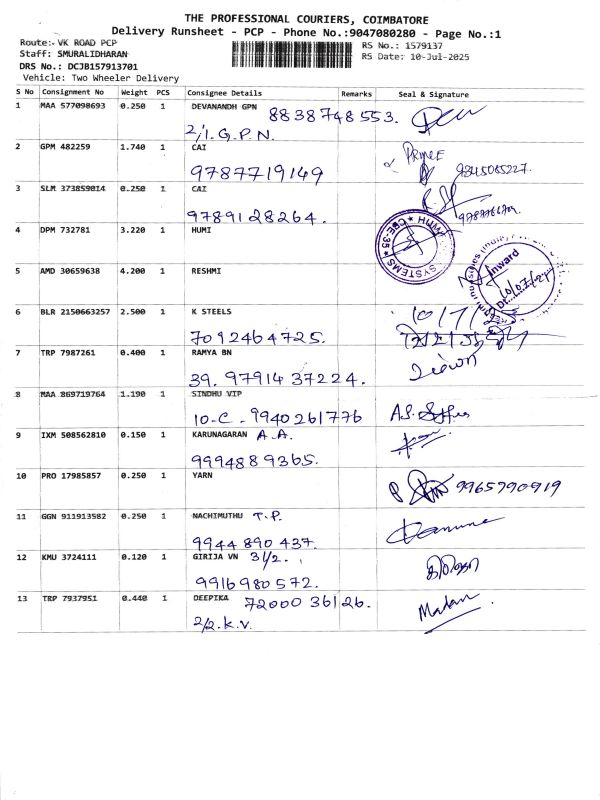 THE PROFESSIONAL COURIERS, COIMBATORE
Delivery Runsheet - PCP - Phone No.:9047080280 - Page No.:1
Route:- VK ROAD PCP
RS No.: 1579137
Staff: SMURALIDHARAN
RS Date: 10-Jul-2025
DRS No.: DCJB157913701
Vehicle: Two Wheeler Delivery
S No Consignment No Weight PCS Consignee Details Remarks Seal & Signature
1 MAA 577098693 0.250 1 DEVANANDH GPN 8838748553.
2/1. G.P.N.
2 GPM 482259 1.740 1 CAI Prince
9787719149 9345085227.
3 SLM 373859014 0.250 1 CAI
9789128264.
4 DPM 732781 3.220 1 HUMI
SYSTEMS * CBE-35 * HUMI
5 AMD 30659638 4.200 1 RESHMI
Inward
6 BLR 2150663257 2.500 1 K STEELS 10/7/25
7092464725.
7 TRP 7987261 0.400 1 RAMYA BN
39. 9791437224.
8 MAA 869719764 1.190 1 SINDHU VIP
10-C - 9940261776
9 IXM 508562810 0.150 1 KARUNAGARAN A.A.
9994889365.
10 PRO 17985857 0.250 1 YARN 9965790919
11 GGN 911913582 0.250 1 NACHIMUTHU T.P.
9944890437.
12 KMU 3724111 0.120 1 GIRIJA VN 31/2.
9916980572.
13 TRP 7937951 0.440 1 DEEPIKA 7200036126. Madan
2/2. K.V.